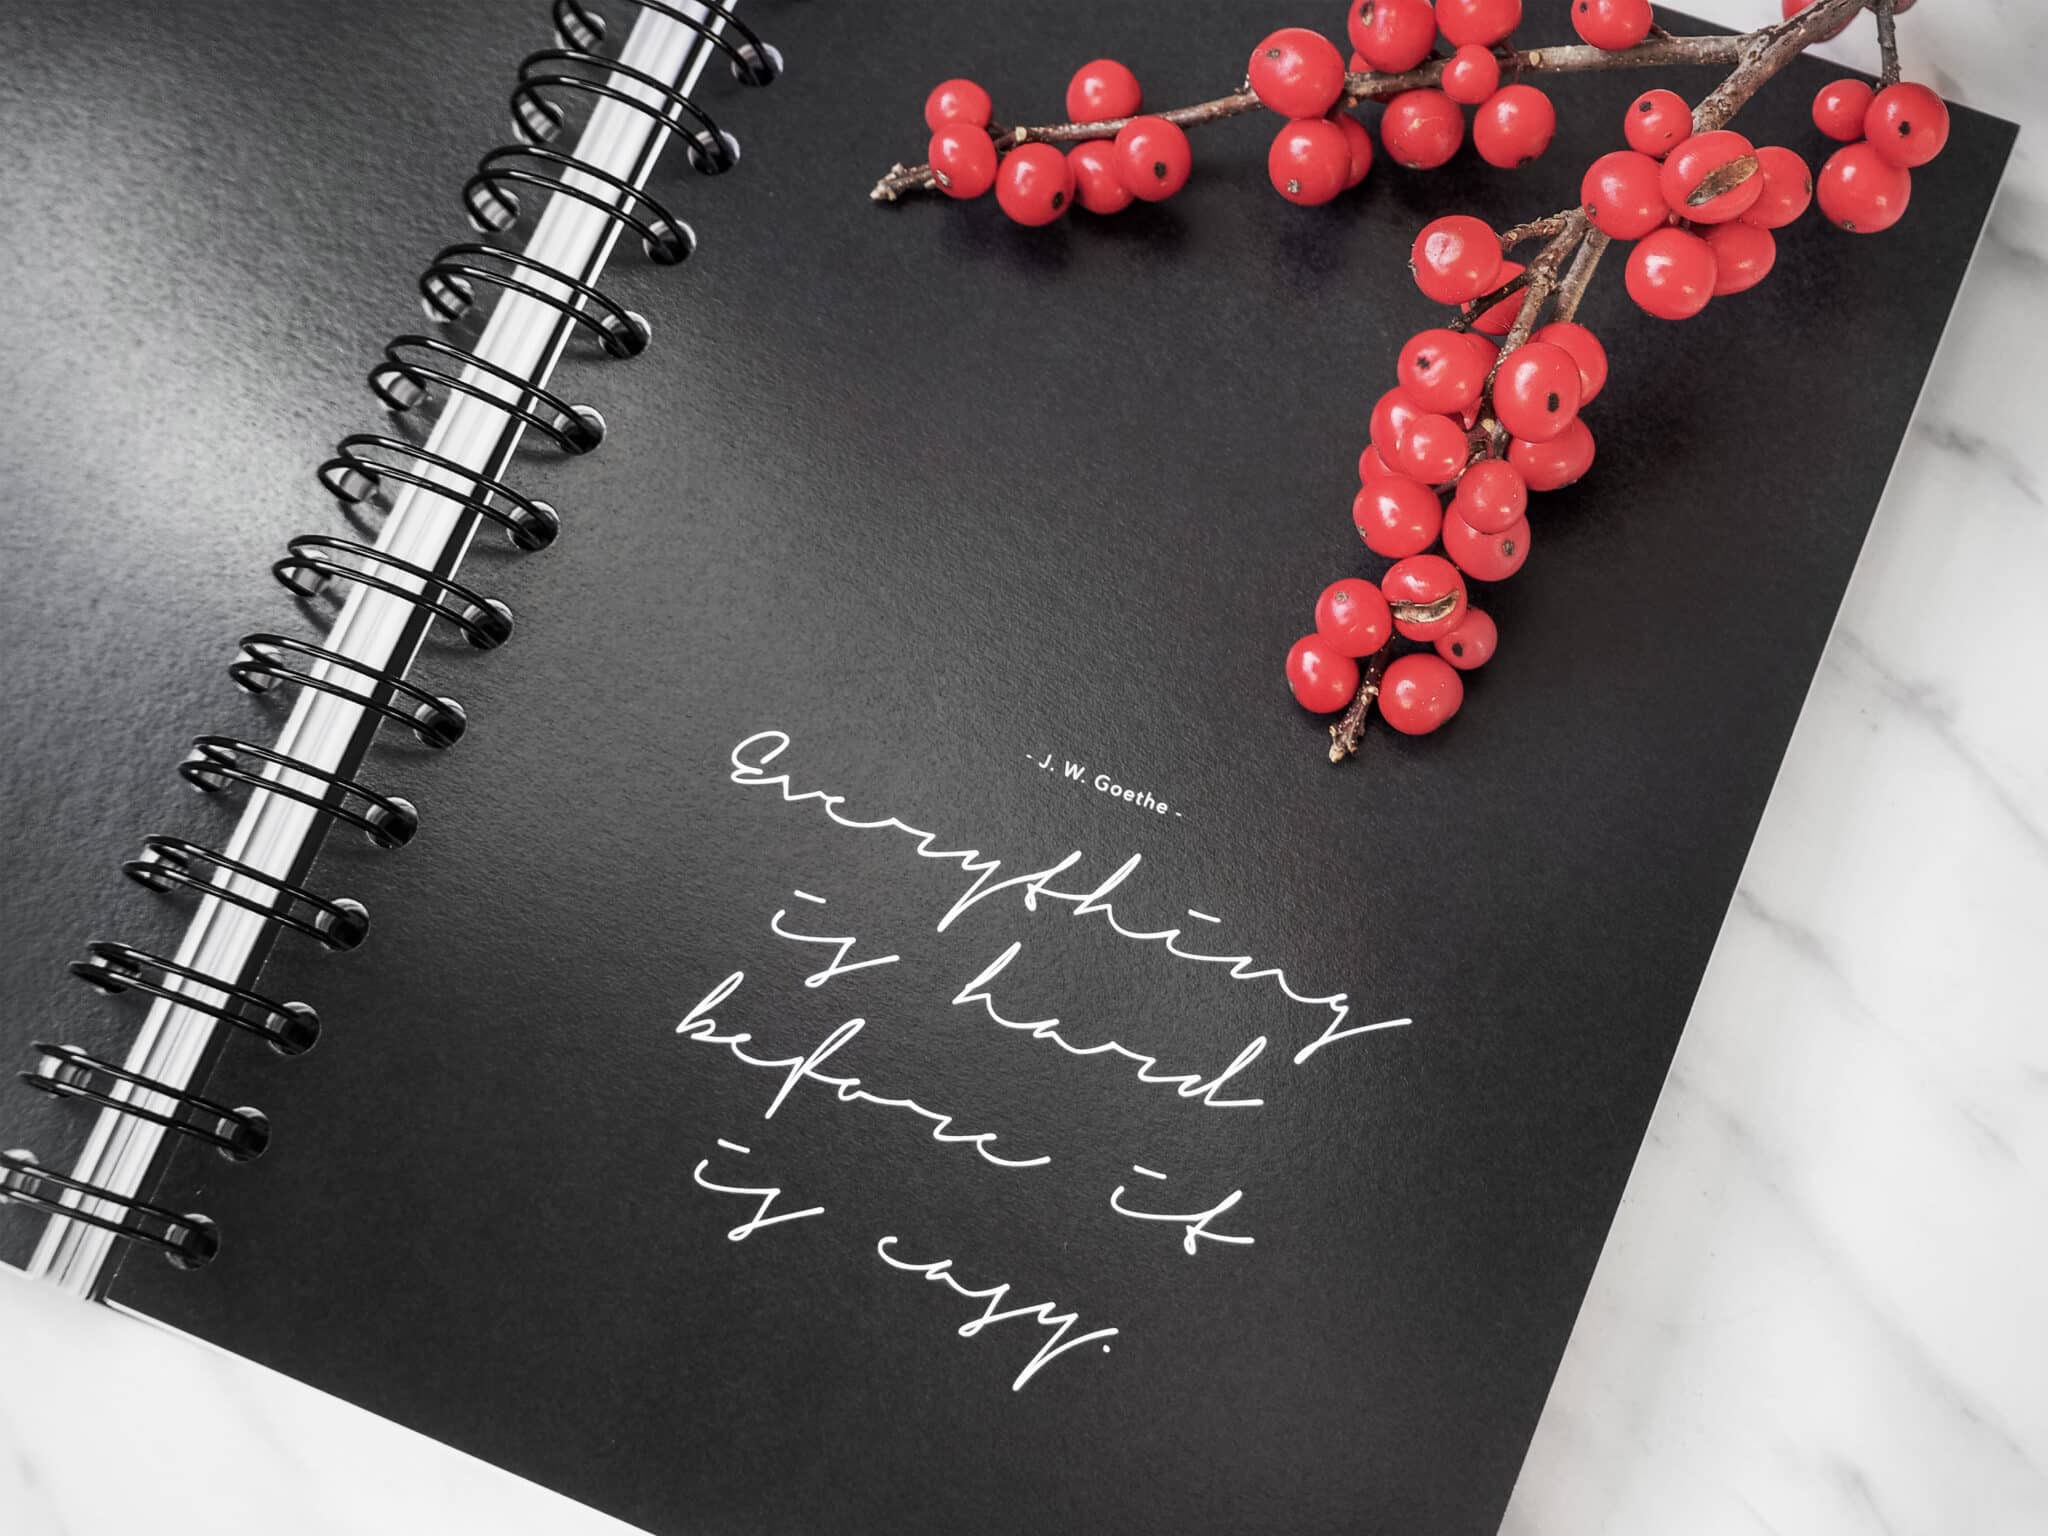 - J. W. Goethe -
Everything
is hard
before it
is easy.